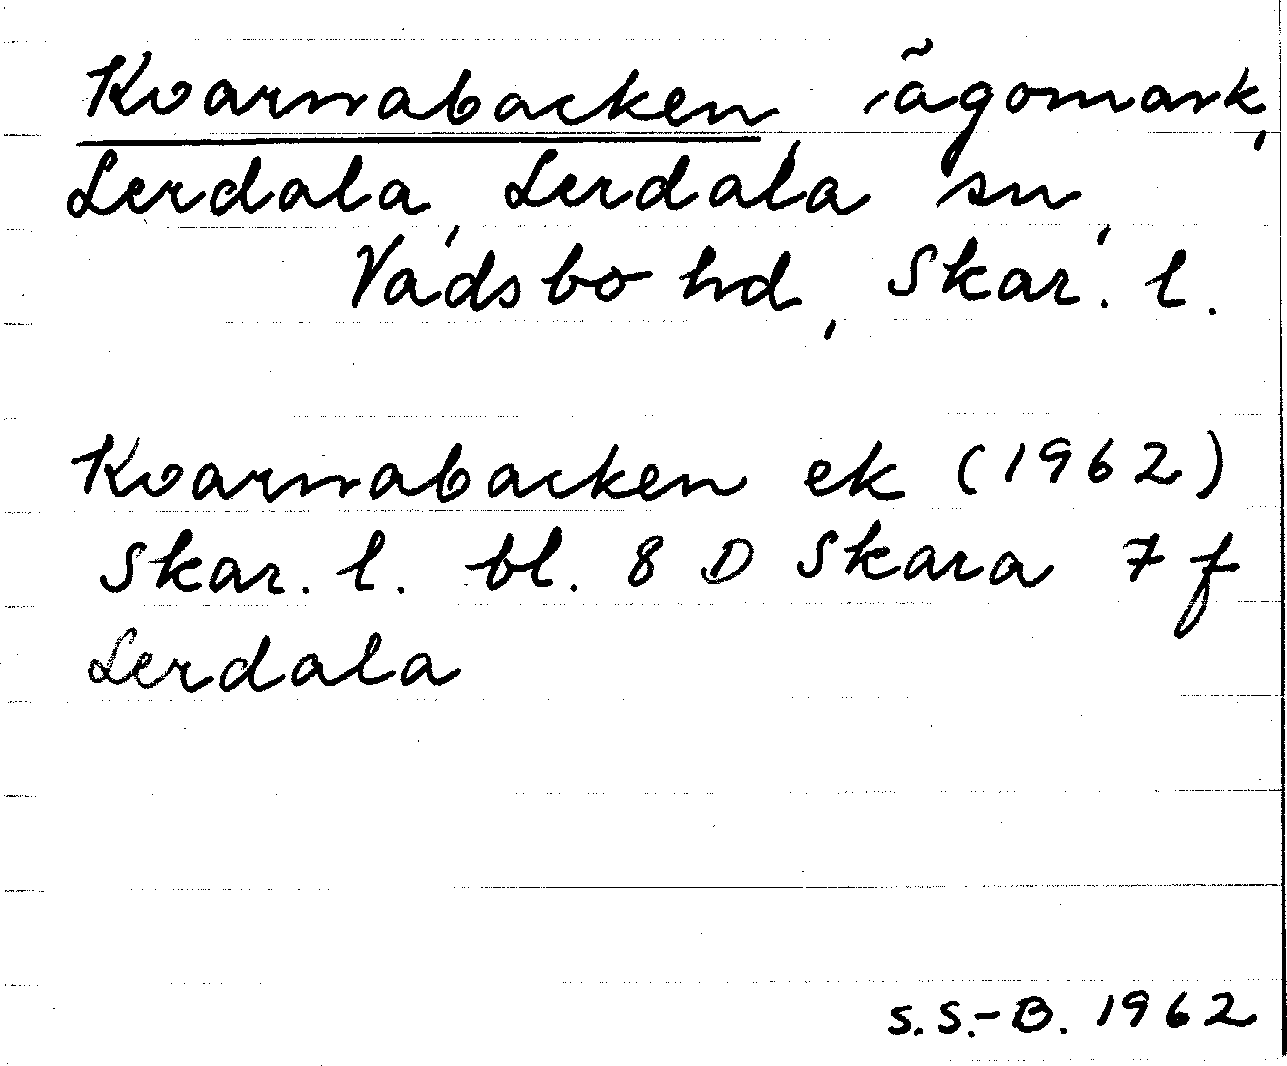 Kvarnabacken, ägomark,
Lerdala, Lerdala sn,
Vadsbo hd, Skar. l.
Kvarnabacken ek (1962)
Skar. l. bl. 8 D Skara 7 f
Lerdala
S. S.-B. 1962